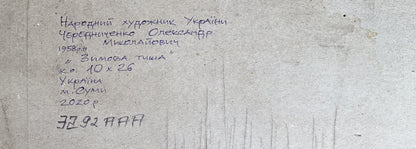 Народний художник України
Чередниченко Олександр
Миколайович
1958р.н
"Зимова тиша"
к.о. 10 х 26
Україна
м. Суми
2020р.